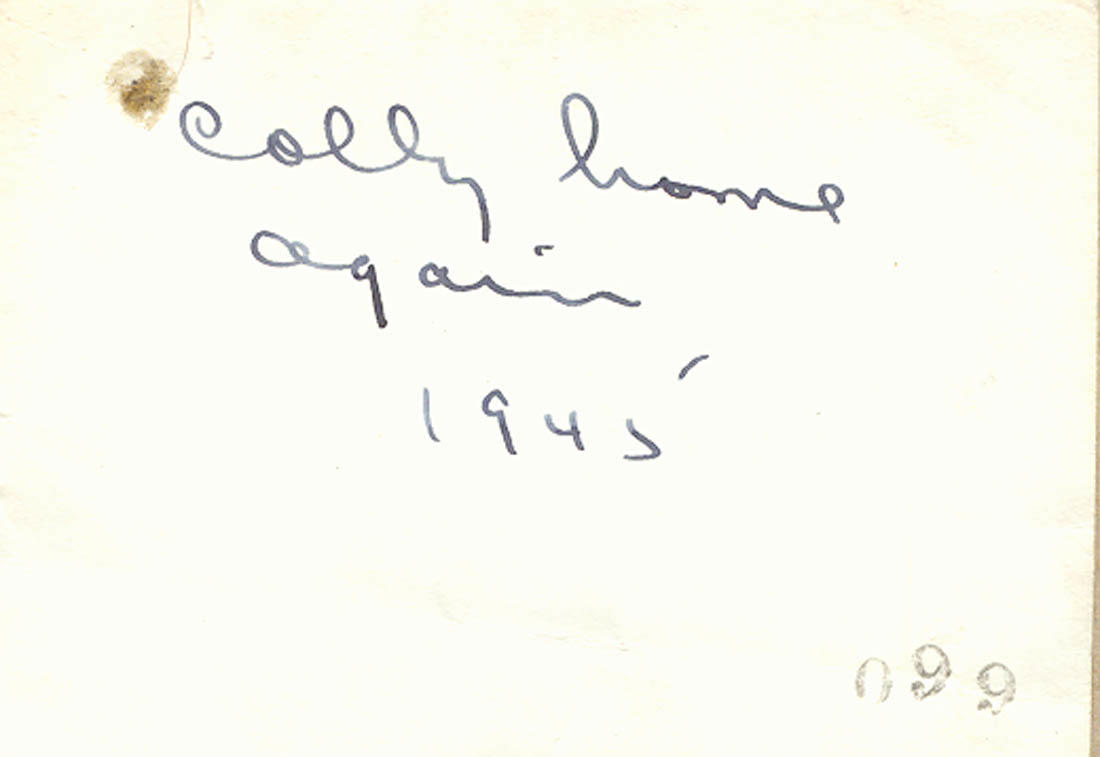 Colly home
again
1945
099